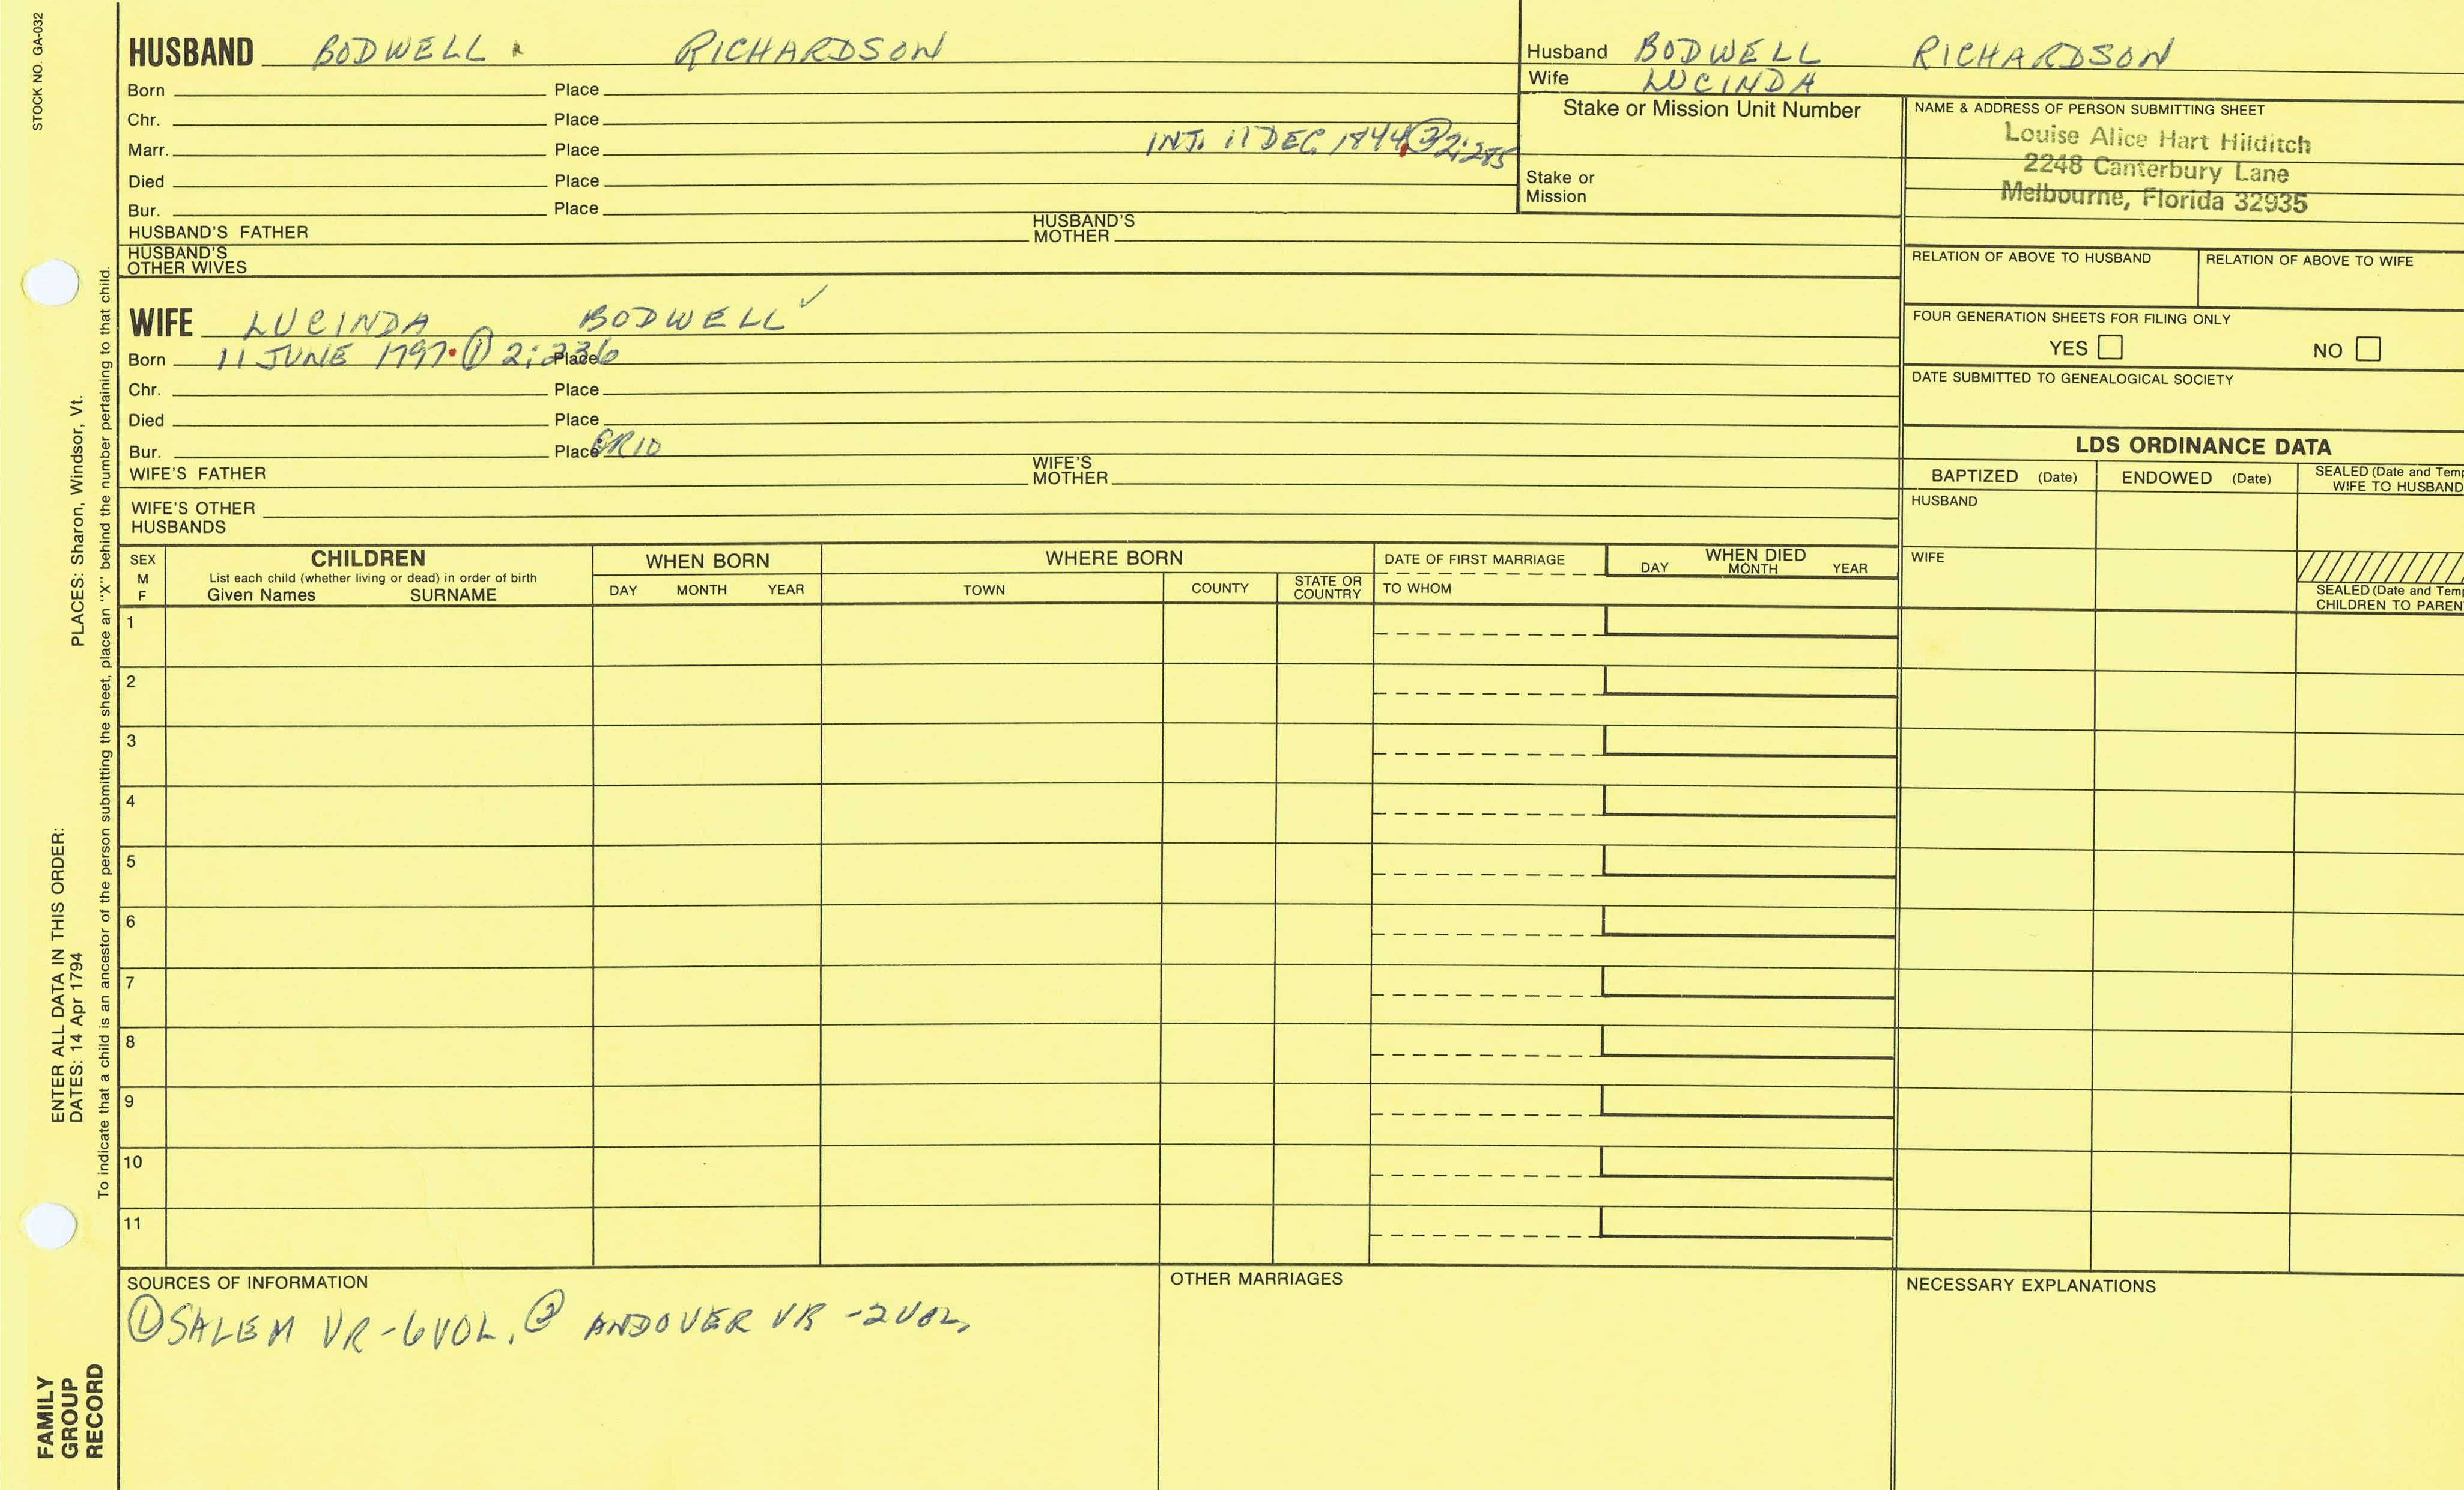 STOCK NO. GA-032
HUSBAND BODWELL RICHARDSON
Born Place
Chr. Place
Marr. Place INT. 11 DEC 1844 ② 2:285
Died Place
Bur. Place
HUSBAND'S FATHER HUSBAND'S MOTHER
HUSBAND'S OTHER WIVES
Husband BODWELL RICHARDSON
Wife LUCINDA
Stake or Mission Unit Number
Stake or Mission
NAME & ADDRESS OF PERSON SUBMITTING SHEET
Louise Alice Hart Hilditch
2248 Canterbury Lane
Melbourne, Florida 32935
RELATION OF ABOVE TO HUSBAND RELATION OF ABOVE TO WIFE
FOUR GENERATION SHEETS FOR FILING ONLY
YES NO
DATE SUBMITTED TO GENEALOGICAL SOCIETY
WIFE LUCINDA BODWELL ✓
Born 11 JUNE 1797 ① 2:236 Place
Chr. Place
Died Place
Bur. Place
WIFE'S FATHER WIFE'S MOTHER
WIFE'S OTHER HUSBANDS
LDS ORDINANCE DATA
BAPTIZED (Date) ENDOWED (Date) SEALED (Date and Temp
WIFE TO HUSBAND
HUSBAND
WIFE
SEALED (Date and Temp
CHILDREN TO PAREN
SEX M F
CHILDREN
List each child (whether living or dead) in order of birth
Given Names SURNAME
WHEN BORN
DAY MONTH YEAR
WHERE BORN
TOWN COUNTY STATE OR COUNTRY
DATE OF FIRST MARRIAGE
TO WHOM
WHEN DIED
DAY MONTH YEAR
1
2
3
4
5
6
7
8
9
10
11
SOURCES OF INFORMATION
① SALEM VR-6VOL. ② ANDOVER VR -2VOL.
OTHER MARRIAGES
NECESSARY EXPLANATIONS
PLACES: Sharon, Windsor, Vt.
ENTER ALL DATA IN THIS ORDER:
DATES: 14 Apr 1794
To indicate that a child is an ancestor of the person submitting the sheet, place an "X" behind the number pertaining to that child.
FAMILY
GROUP
RECORD